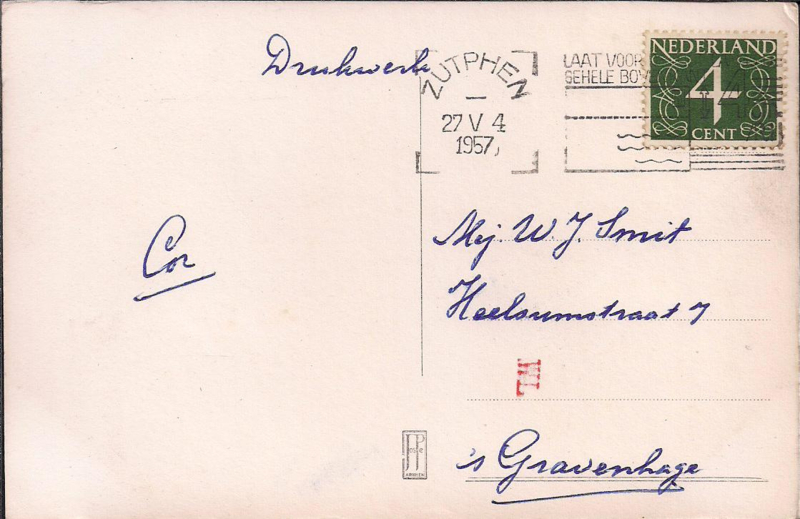 Drukwerk
ZUTPHEN
27 V 4
1957
LAAT VOOR
GEHELE
NEDERLAND
4
CENT
Cor
Mej. W. J. Smit
Heelsumstraat 7
's Gravenhage